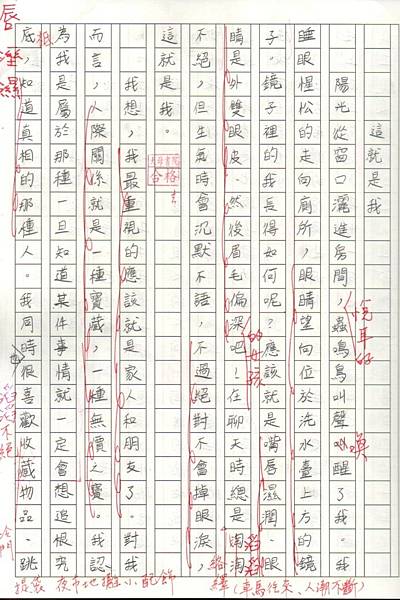 這就是我
陽光從窗口灑進房間,蟲鳴鳥叫聲叫醒了我。我
睡眼惺忪的走向廁所,眼睛望向位於洗水臺上方的鏡
子。鏡子裡的我長得如何呢?應該就是嘴唇濕潤、眼
睛是外雙眼皮、然後眉毛偏深吧!在聊天時總是滔滔
不絕,但生氣時會沉默不語,不過絕對不會掉眼淚,
這就是我。
我想,我最重視的應該就是家人和朋友了。對我
而言,人際關係就是一種寶藏,一種無價之寶。我認
為我是屬於那種一旦知道某件事情就一定會想追根究
底,知道真相的那種人。我同時很喜歡收藏物品、跳
悅耳的
喚
的女孩
滔滔
合格
唇
濕
絡繹(車馬往來、人潮不斷)
夜市地攤小配飾